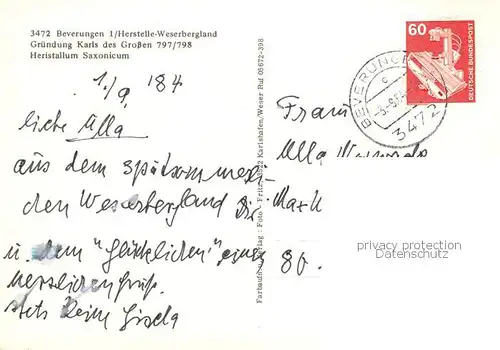 3472 Beverungen 1/Herstelle-Weserbergland
Gründung Karls des Großen 797/798
Heristallum Saxonicum
1./9. 184
liebe Ulla
aus dem spätsommerli-
den Weserbergland Dir
u. dem "Glücklichen" einen
herzlichen Gruß
stets Deine Gisela
Farbaufn. Verlag: Foto Fritz, 3522 Karlshafen/Weser Ruf 05672-398
60
DEUTSCHE BUNDESPOST
BEVERUNGEN
c
3472
Frau
Ulla
Mark
80.
privacy protection
Datenschutz